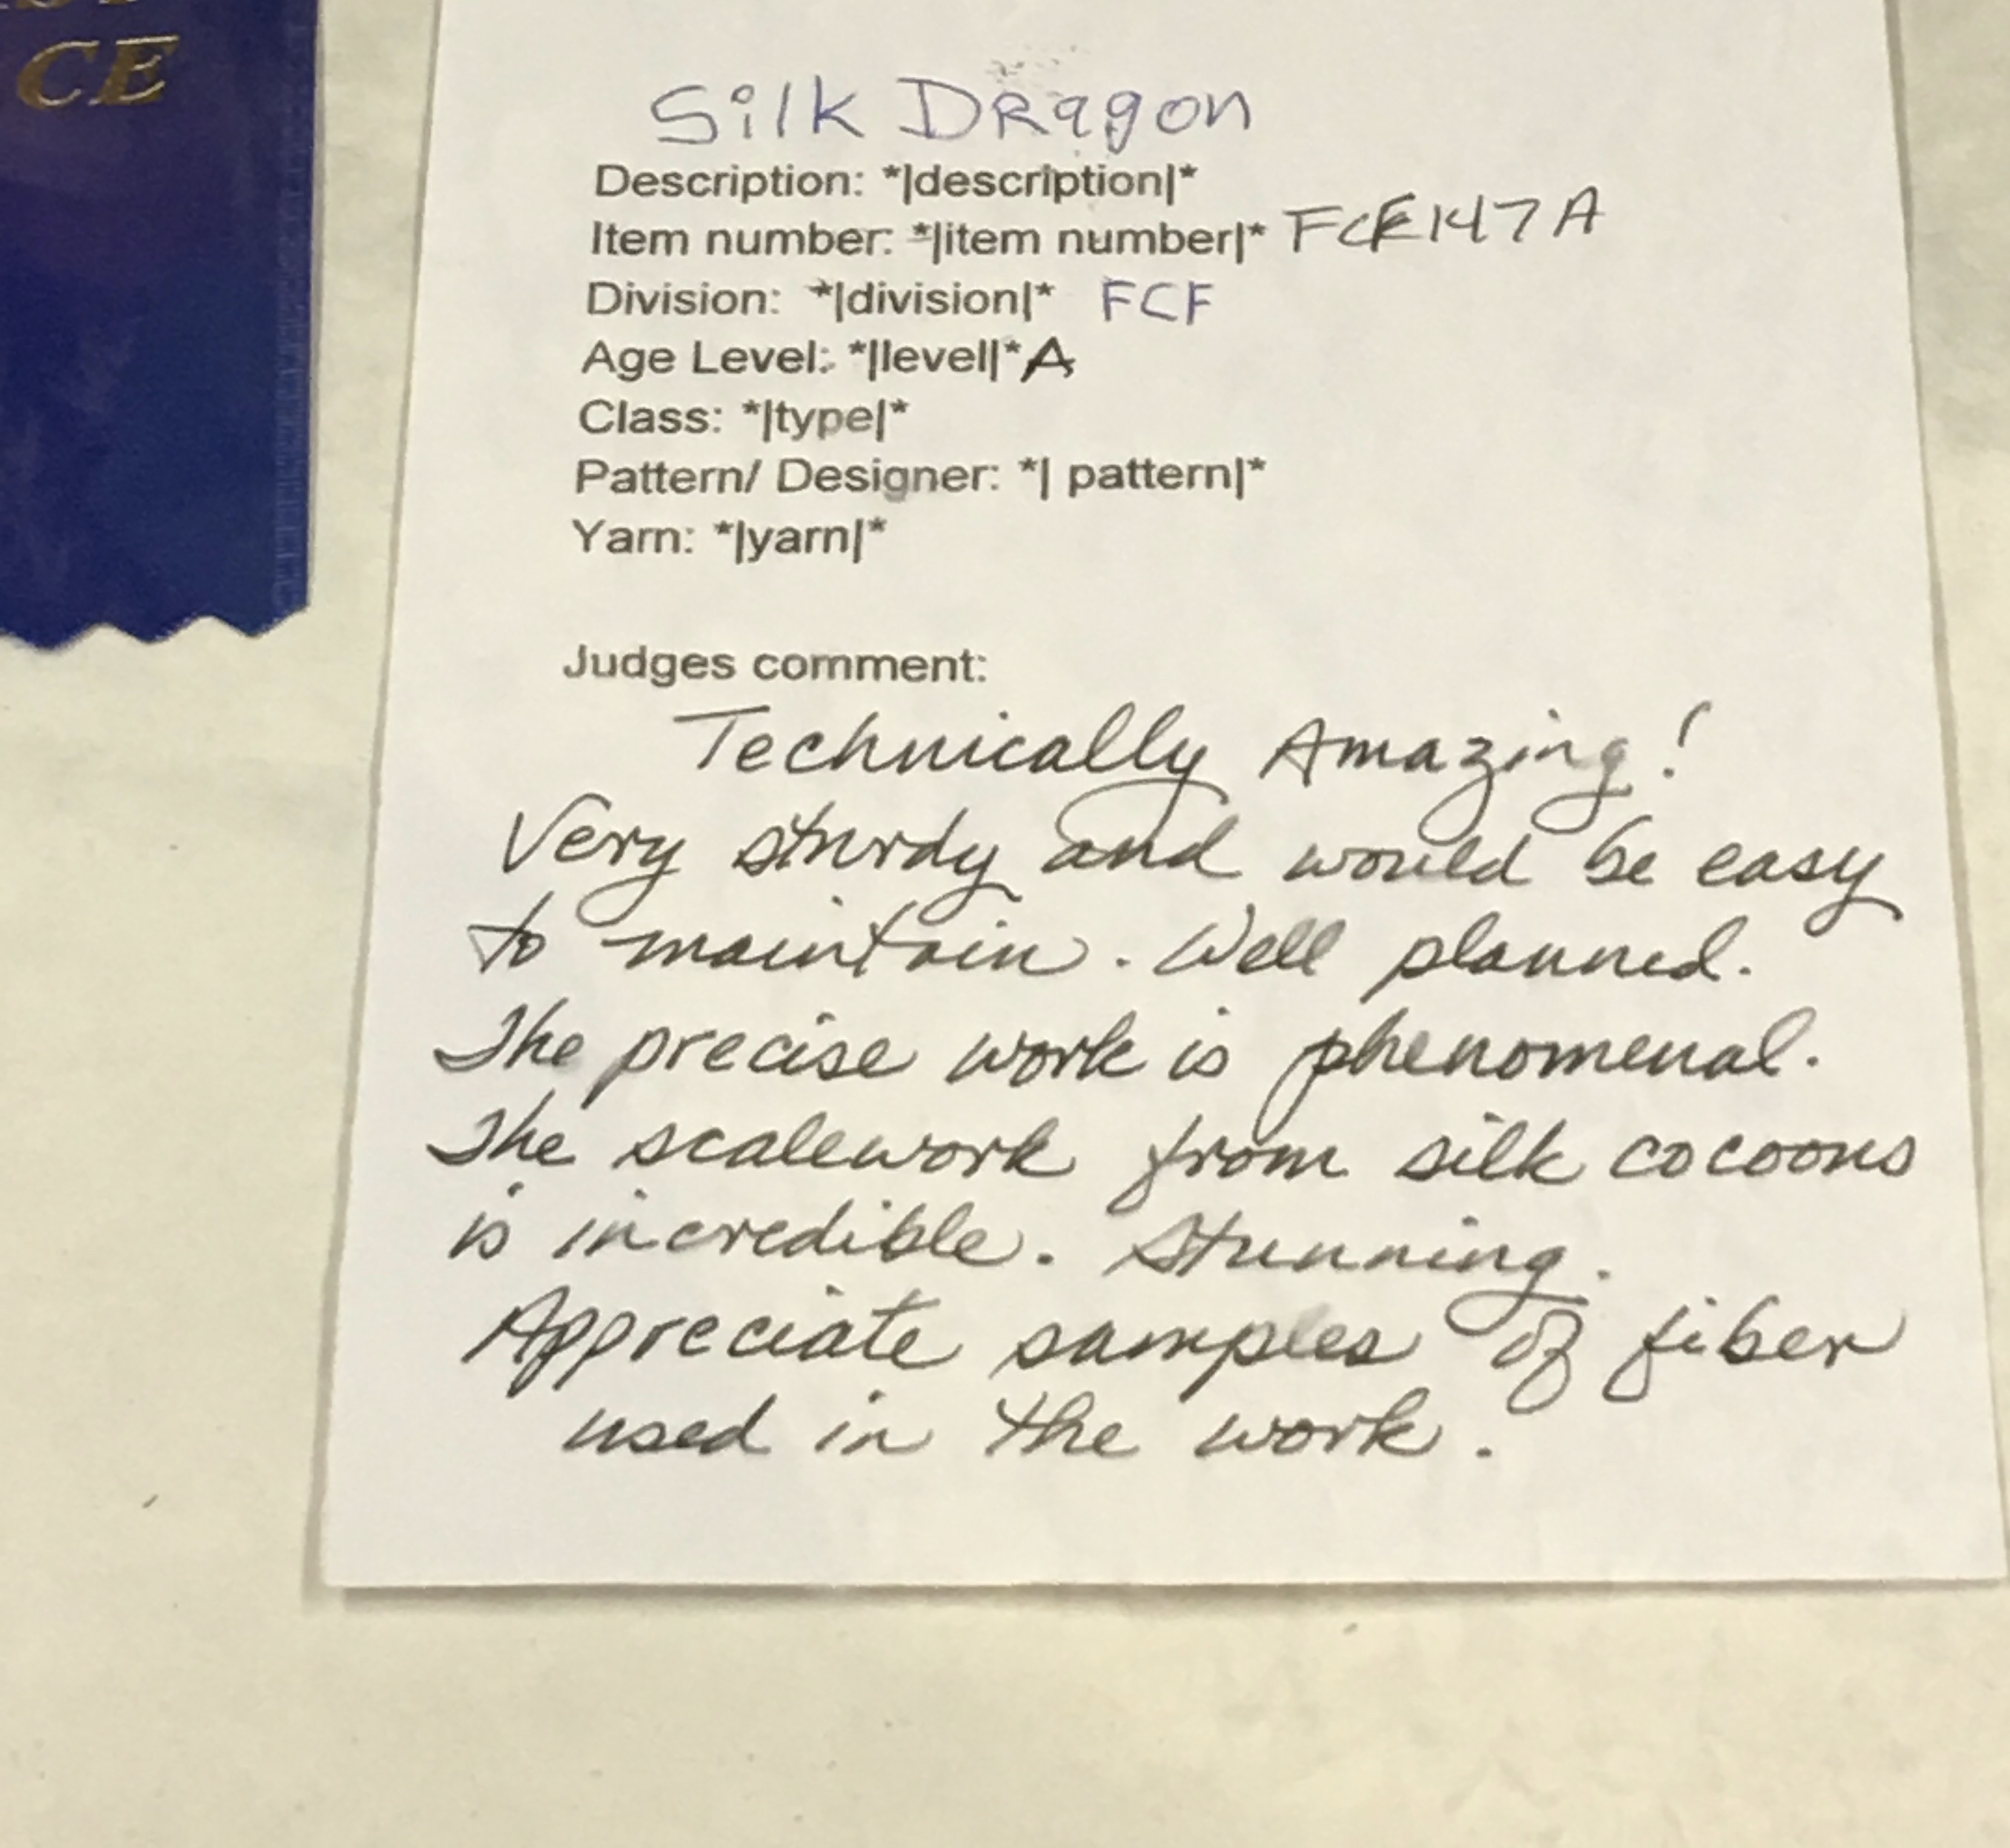 CE
Silk Dragon
Description: *|description|*
Item number: *|item number|* FCF147A
Division: *|division|* FCF
Age Level: *|level|* A
Class: *|type|*
Pattern/ Designer: *| pattern|*
Yarn: *|yarn|*
Judges comment:
Technically Amazing!
Very sturdy and would be easy
to maintain. Well planned.
The precise work is phenomenal.
The scalework from silk cocoons
is incredible. Stunning.
Appreciate samples of fiber
used in the work.